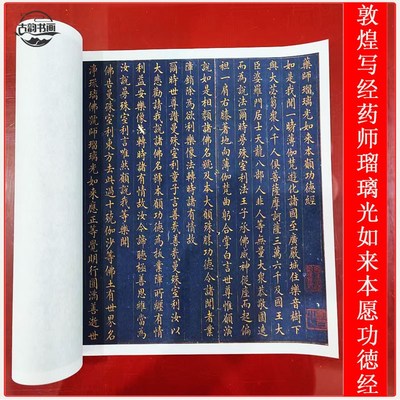 古韵书画
敦煌写经药师瑠璃光如来本愿功徳经
藥師瑠璃光如來本願功德經
如是我聞一時薄伽梵遊化諸國至廣嚴城住樂音樹下
與大苾芻衆八千人俱菩薩摩訶薩三萬六千及國王大
臣婆羅門居士天龍八部人非人等無量大衆恭敬圍遶
而為說法爾時曼殊室利法王子承佛威神從座而起偏
袒一肩右膝著地向薄伽梵曲躬合掌白言世尊惟願演
說如是相類諸佛名號及本大願殊勝功德令諸聞者業
障銷除為欲利樂像法轉時諸有情故
爾時世尊讚曼殊室利童子言善哉善哉曼殊室利汝以
大悲勸請我說諸佛名號本大願功德為拔業障所纏有情
利益安樂像法轉時諸有情故汝今諦聽極善思惟當為
汝說曼殊室利言唯然願說我等樂聞
佛告曼殊室利東方去此過十殑伽沙等佛土有世界名
淨瑠璃佛號師瑠璃光如來應正等覺明行圓滿善逝世